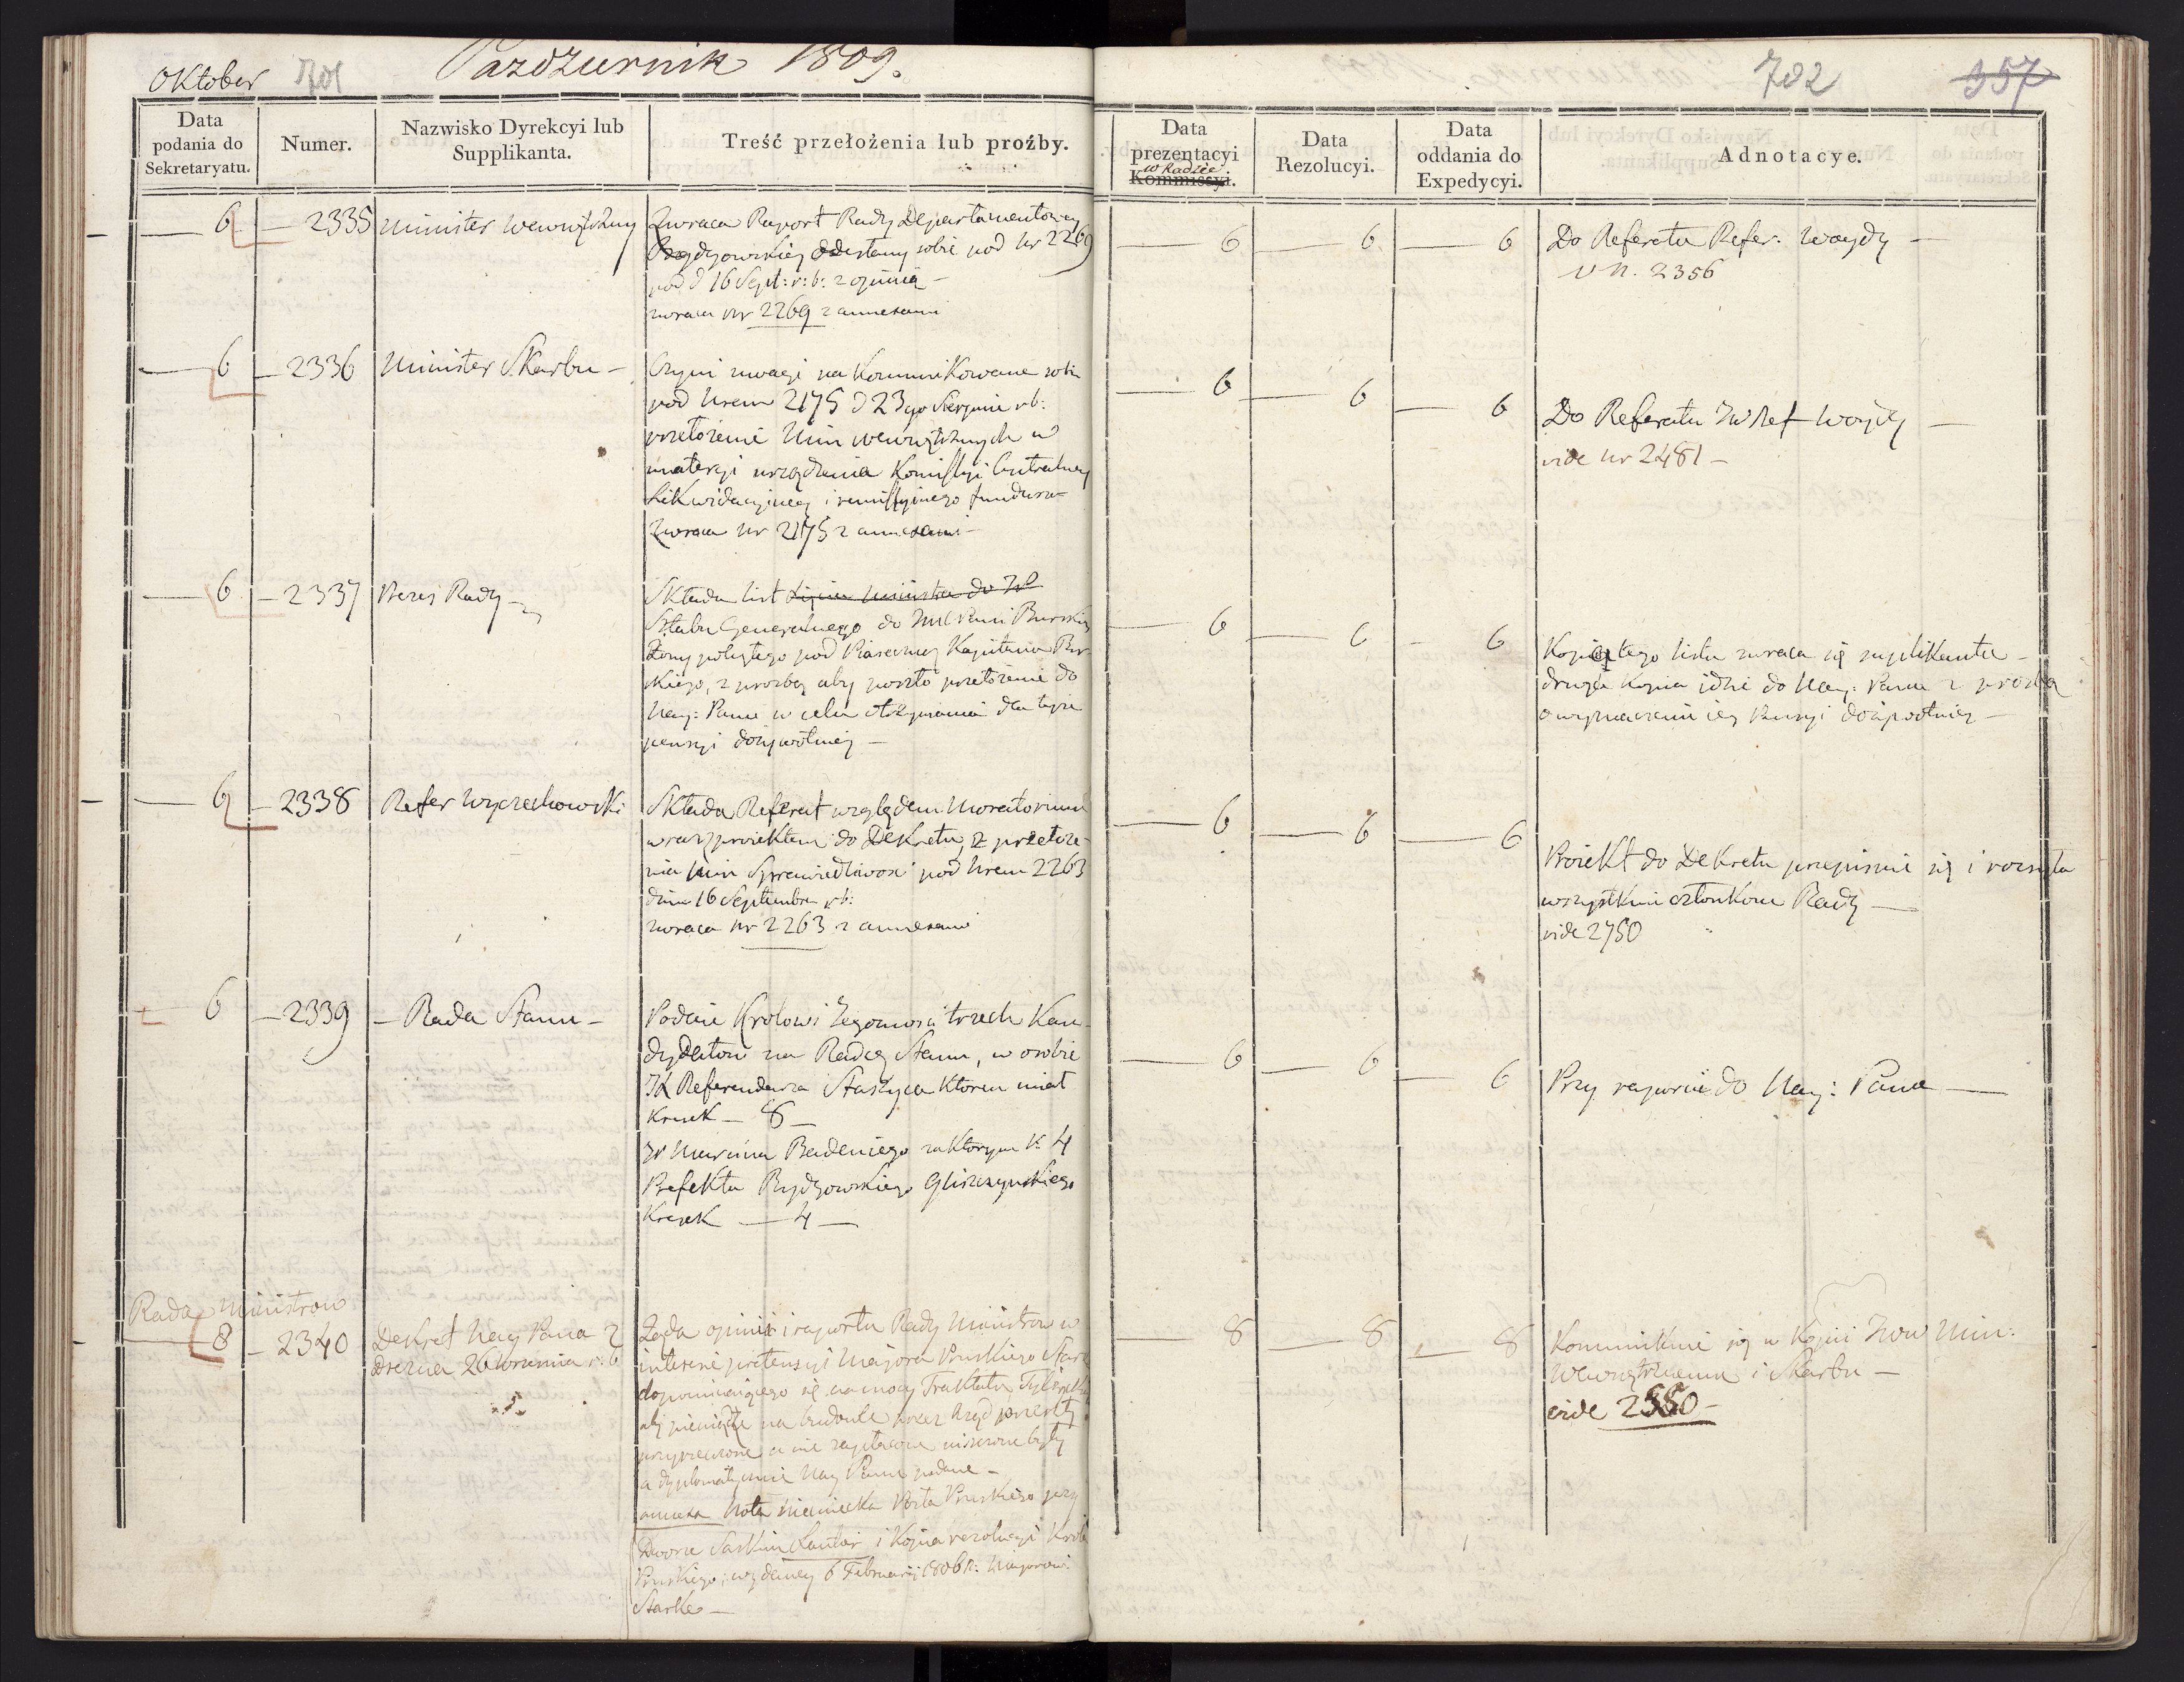 Oktober 701
Pazdziernik 1809.
Data podania do Sekretaryatu.
Numer.
Nazwisko Dyrekcyi lub Supplikanta.
Treść przełożenia lub proźby.
6 2335 Minister Wewnętrzny
Zwraca Raport Rady Departamentowey
Bydgowskiey odesłany sobie pod Nr 2269
pod d 16 Sept: r: b: z opinią
zwraca Nr 2269 z annexami
6 2336 Minister Skarbu
Czyni uwagi na kommunikowane sobie
pod Nrem 2175 d 23go Sierpnia rb:
przełożenie Min wewnętrznych w
materyi urządzenia Komissyi Centralney
Likwidacyiney i remissyinego funduszu
Zwraca Nr 2175 z annexami
6 2337 Prezes Rady
Składa list
Sztabu Generalnego do JMC Pani Burskiey
Żony poległego pod Piasecznej Kapitana Bur
skiego, z prozbą aby poszło przełożenie do
Nay: Pana w celu otrzymania dla teyże
pensyi dożywotniey
6 2338 Refer Wyczechowski
Składa Referat względem Moratorium
wraz z proiektem do Dekretu, z przełoże
nia Min Sprawiedliwosci pod Nrem 2263
dnia 16 Septembra rb:
zwraca Nr 2263 z annexami
6 2339 Rada Stanu
Podaie Krolowi Jegomosci trzech Kan
dydatow na Radcę Stanu, w osobie
JP Referendarza Staszyca ktoren miał
kresek 8
JP Marcina Badeniego za którym k: 4
Prefekta Bydgowskiego Gliszczynskiego
Kresek 4
Rada Ministrow
8 2340 Dekret Nay Pana z
Drezna 26 Wrzesnia r: b
Żąda opinii i raportu Rady Ministrow w
interesie pretensyi Majora Pruskiego Stark
dopominaiącego się na mocy Traktatu Tylżyck
aby pieniądze na budowle przez Rząd przeszły
przyrzeczone a nie zapłacone uiszczone były
a dyplomatycznie Nay Panu podane
annexa Nota niemiecka Posła Pruskiego przy
Dworze Saskim i Kopia rezolucyi Krola
Pruskiego, wydaney 6 Februarij 1806 r: Majorowi
Starke
702 357
Data prezentacyi Kommissyi. w Radzie
Data Rezolucyi.
Data oddania do Expedycyi.
Adnotacye.
6 6 6 Do Referatu Refer: Woydy
v N. 2356
6 6 6 Do Referatu JW Ref Woydy
vide Nr 2481
6 6 6 Kopia tego listu zwraca się suplikantce
druga kopia idzie do Nay: Pana z prozbą
o wyznaczenie iey Pensyi dożywotniey
6 6 6 Proiekt do Dekretu przepisuie się i rozsyła
wszystkim członkom Rady
vide 2750
6 6 6 Przy raporcie do Nay: Pana
8 8 8 Kommunikuie się w Kopii JWW Min:
Wewnętrznemu i Skarbu
vide 2550